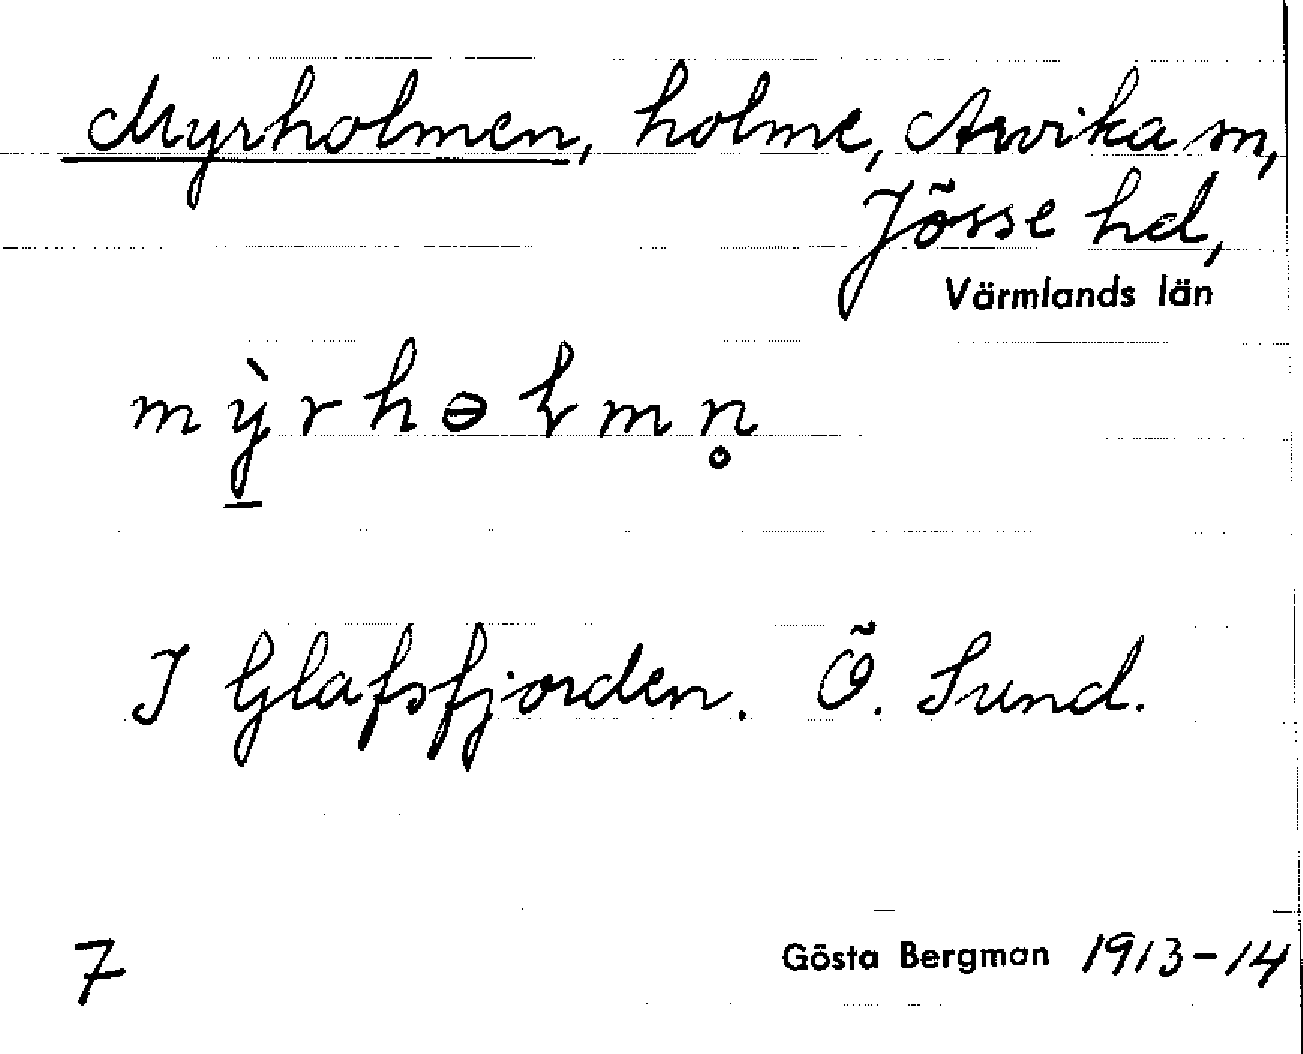 Myrholmen, holme, Arvika sn,
Jösse hd,
Värmlands län
m ỳ̲ r h ə ɽ m n̥
I Glafsfjorden. Ö. Sund.
7
Gösta Bergman 1913-14